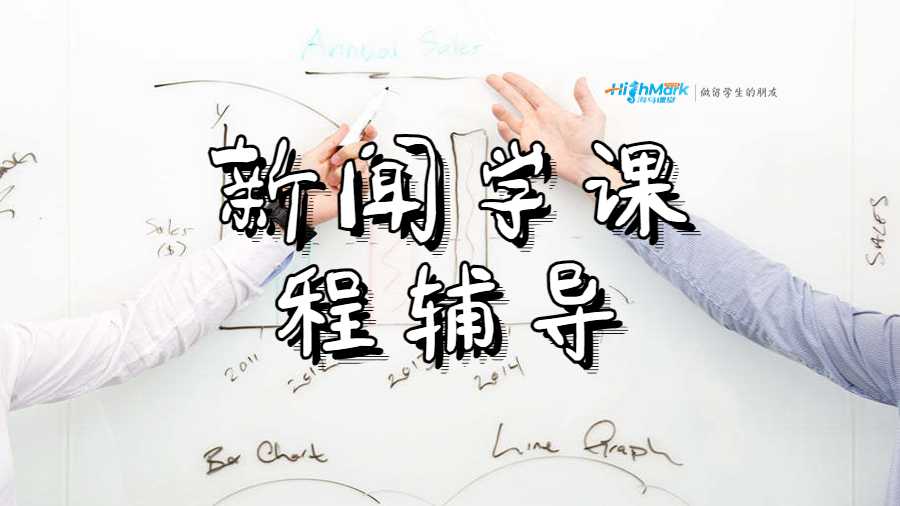 Annual Sales
HighMark
海马课堂
做留学生的朋友
y
新闻学课
程辅导
Sales
($)
SALES
2011
2013
2014
Bar Chart
Line Graph